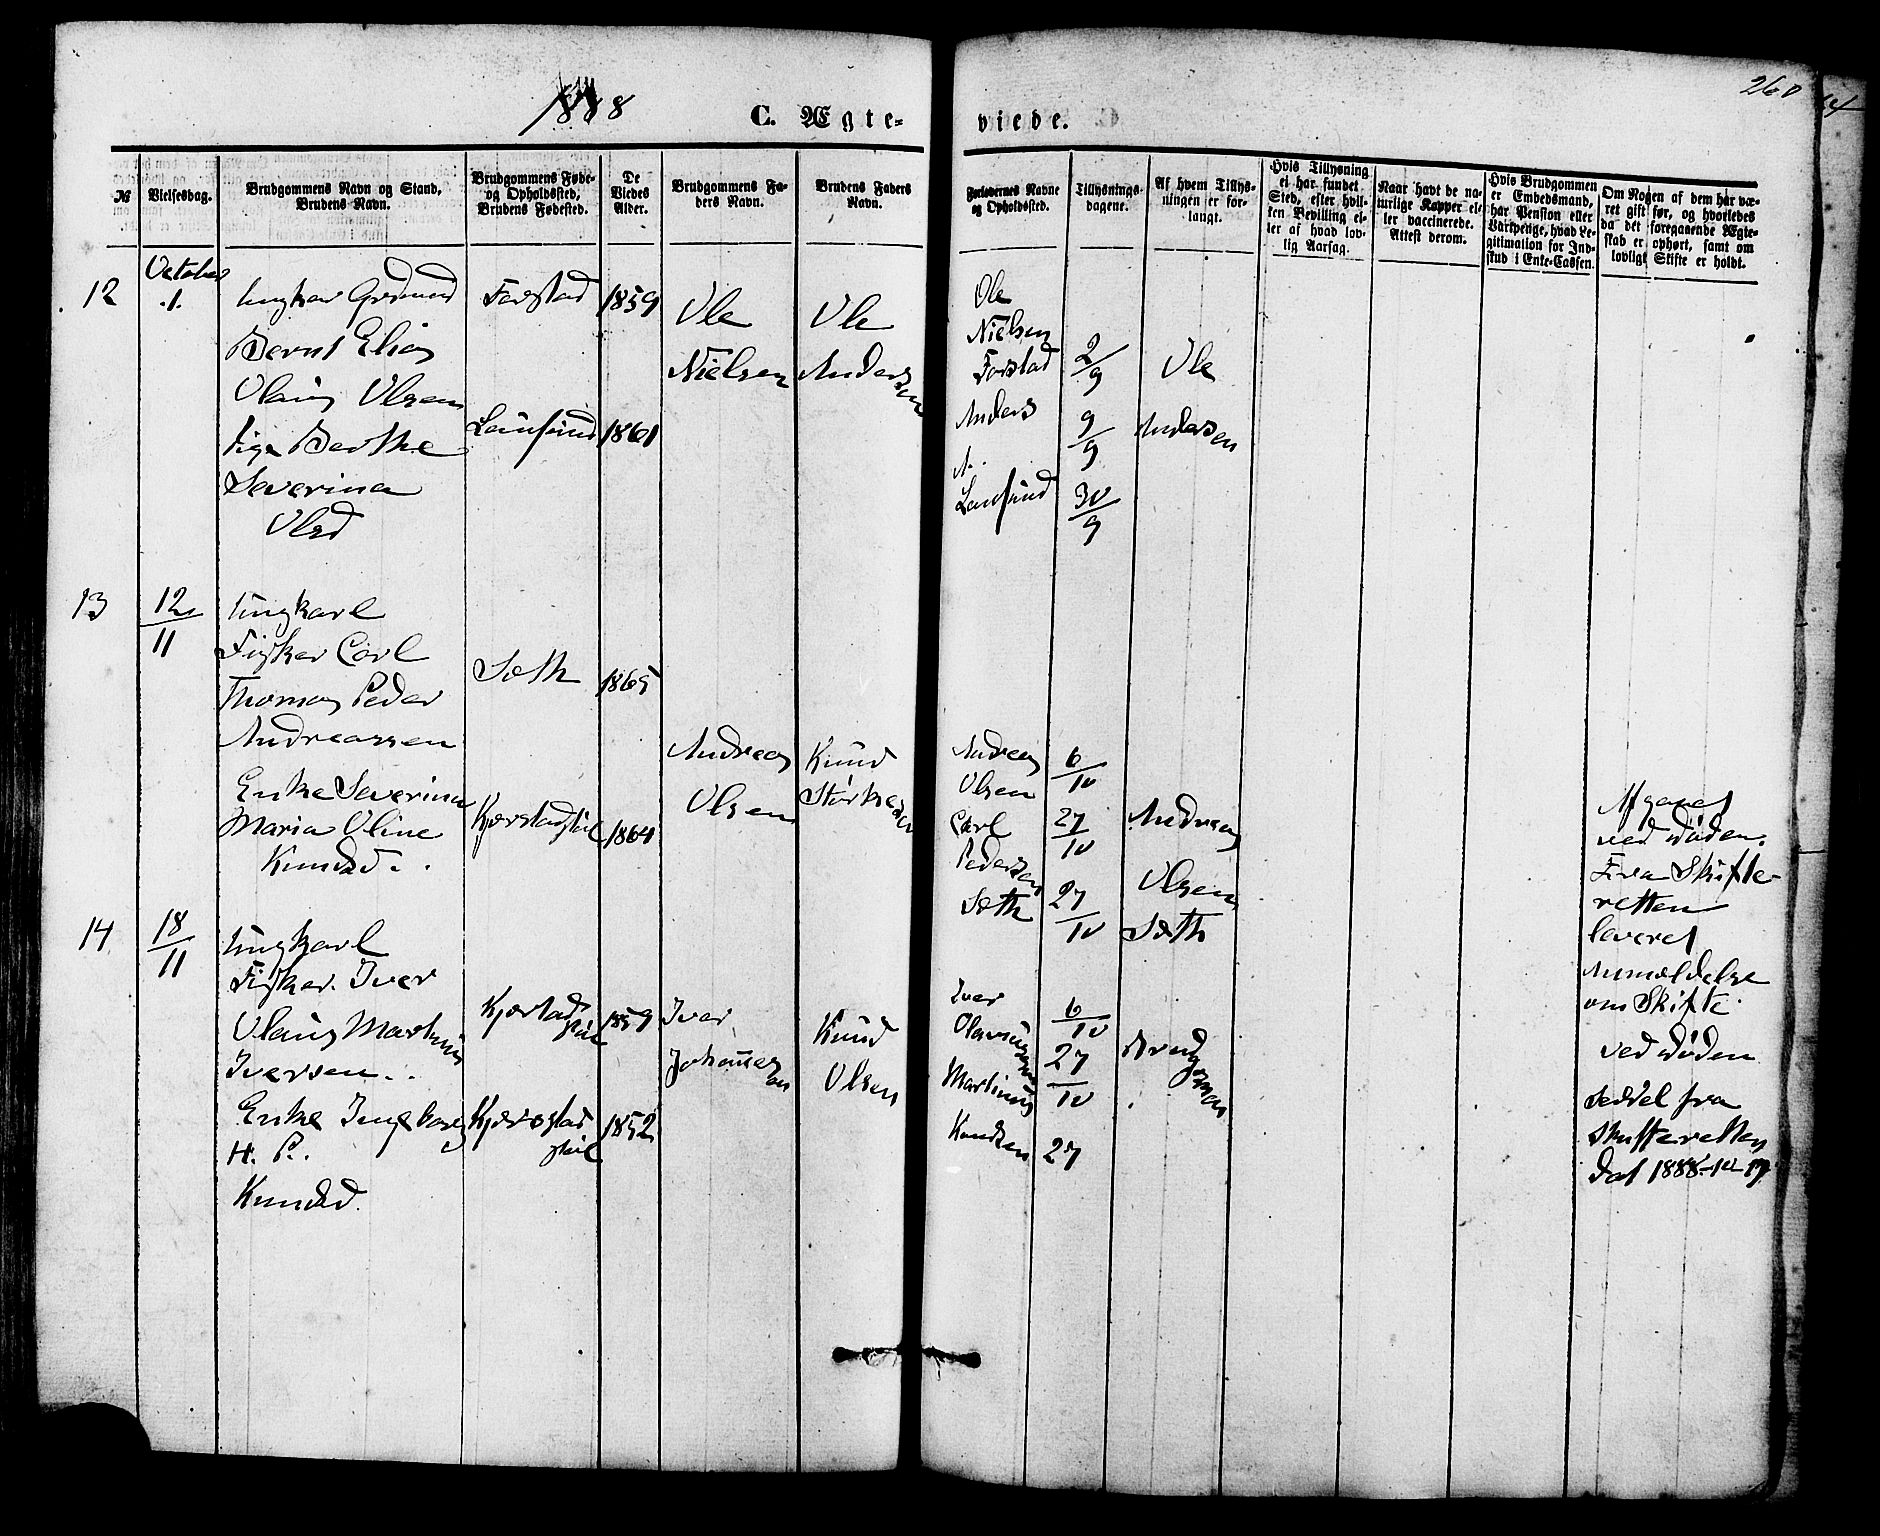 1888
C. Ægte-
viede.
260
№
Vielsesdag.
Brudgommens Navn og Stand,
Brudens Navn.
Brudgommens Føde-
og Opholdssted,
Brudens Fødested.
De
Viedes
Alder.
Brudgommens Fa-
ders Navn.
Brudens Faders
Navn.
Forlovernes Navne
og Opholdssted.
Tillysnings-
dagene.
Af hvem Tillys-
ningen er for-
langt.
Hvis Tillysning
ei har fundet
Sted, efter hvil-
ken Bevilling el-
ler af hvad lov-
lig Aarsag.
Naar havt de na-
turlige Kopper el-
ler vaccinerede.
Attest derom.
Hvis Brudgommen
er Embedsmand,
har Pension eller
Vartpenge, hvad Le-
gitimation for Ind-
skud i Enke-Cassen.
Om Nogen af dem har væ-
ret gift før, og hvorledes
da det foregaaende Ægte-
skab er ophørt, samt om
lovligt Skifte er holdt.
12
October
1.
Ungkar
Bernt Elias
Olaus Olsen
Pige Berthe
Severina
Olsd
Farstad
1859
1861
Ole
Nielsen
Ole
Andersen
Ole
Nielsen
Farstad
Anders
A.
2/9
9/9
30/9
Ole
Andersen
13
12/11
Ungkarl
Fisker Carl
Thomas Peder
Andreassen
Enke Severina
Maria Oline
Knudsd.
Sæth
1865
1864
Andreas
Olsen
Knud
Andreas
Olsen
Carl
Pedersen
Sæth
6/10
27/10
27/10
Andreas
Olsen
Sæth
Afganet
ved Døden.
Fra Skifte-
retten
leveret
Anmældelse
om Skifte.
14
18/11
Ungkarl
Fisker Iver
Olaus Martinus
Iversen.
Enke Ingeborg
H. P.
Knudsd.
1859
1852
Iver
Johannesen
Knud
Olsen
Iver
Martinus
Knudsen
6/10
27/10
27
Brudgommen
ved Døden
Seddel fra
Skifteretten
Dat 1888